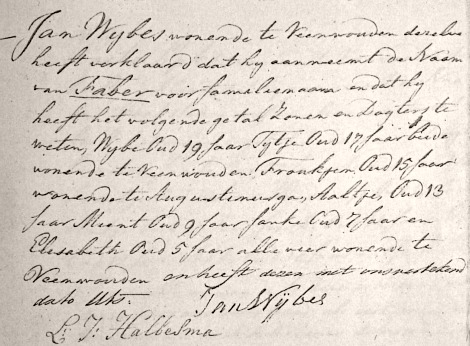 Jan Wybes wonende te Veenwouden dezelve
heeft verklaard dat hy aanneemt de Naam
van Faber voor familienaam en dat hy
heeft het volgende getal Zonen en Dogters te
weten, Wybe Oud 19 Jaar Tytje Oud 17 Jaar beide
wonende te Veenwouden. Froukjen, Oud 15 Jaar
wonende te Augustinusga, Aaltje, Oud 13
Jaar Meint Oud 9 Jaar Janke Oud 7 Jaar en
Elisabeth Oud 5 Jaar alle vier wonende te
Veenwouden en heeft dezen met ons getekend
dato Uts.
Jan Wybes
L: J: Halbesma